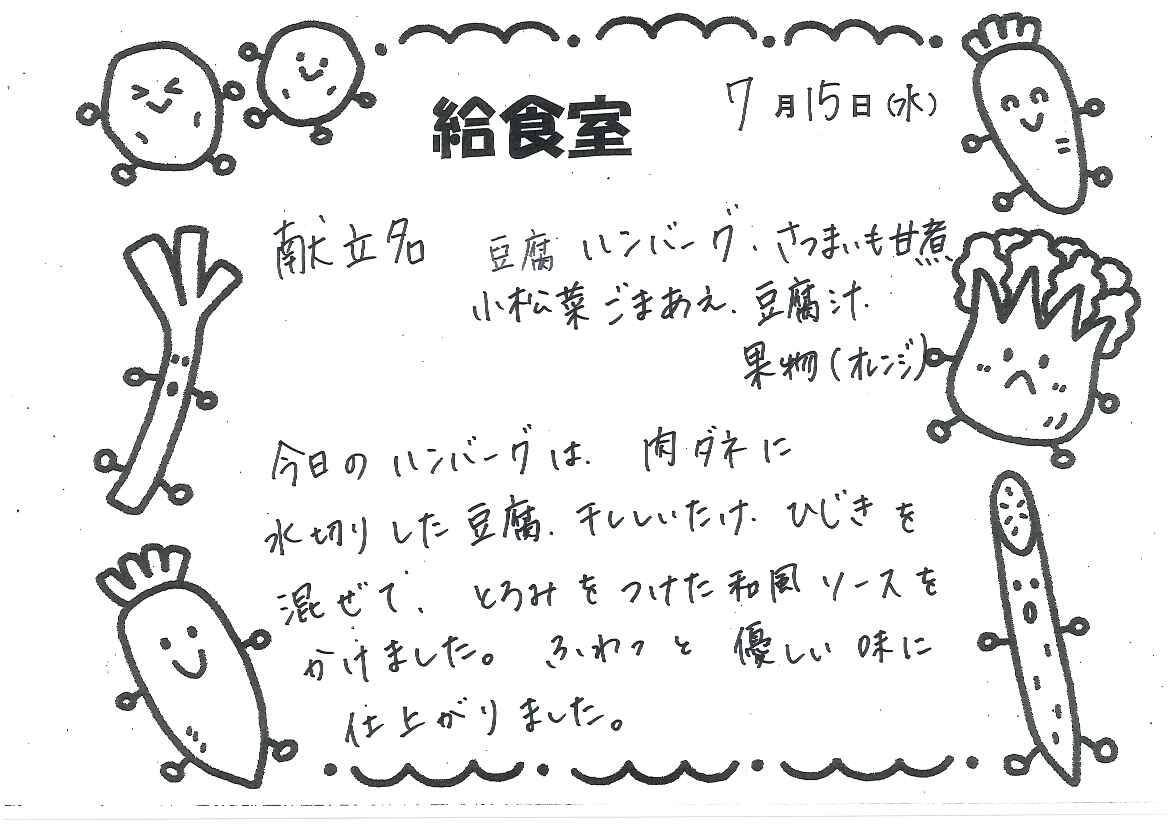 給食室
7月15日(水)
献立名 豆腐ハンバーグ、さつまいも甘煮
小松菜ごまあえ、豆腐汁、
果物(オレンジ)
今日のハンバーグは、肉ダネに
水切りした豆腐、干ししいたけ、ひじきを
混ぜて、とろみをつけた和風ソースを
かけました。ふわっと優しい味に
仕上がりました。